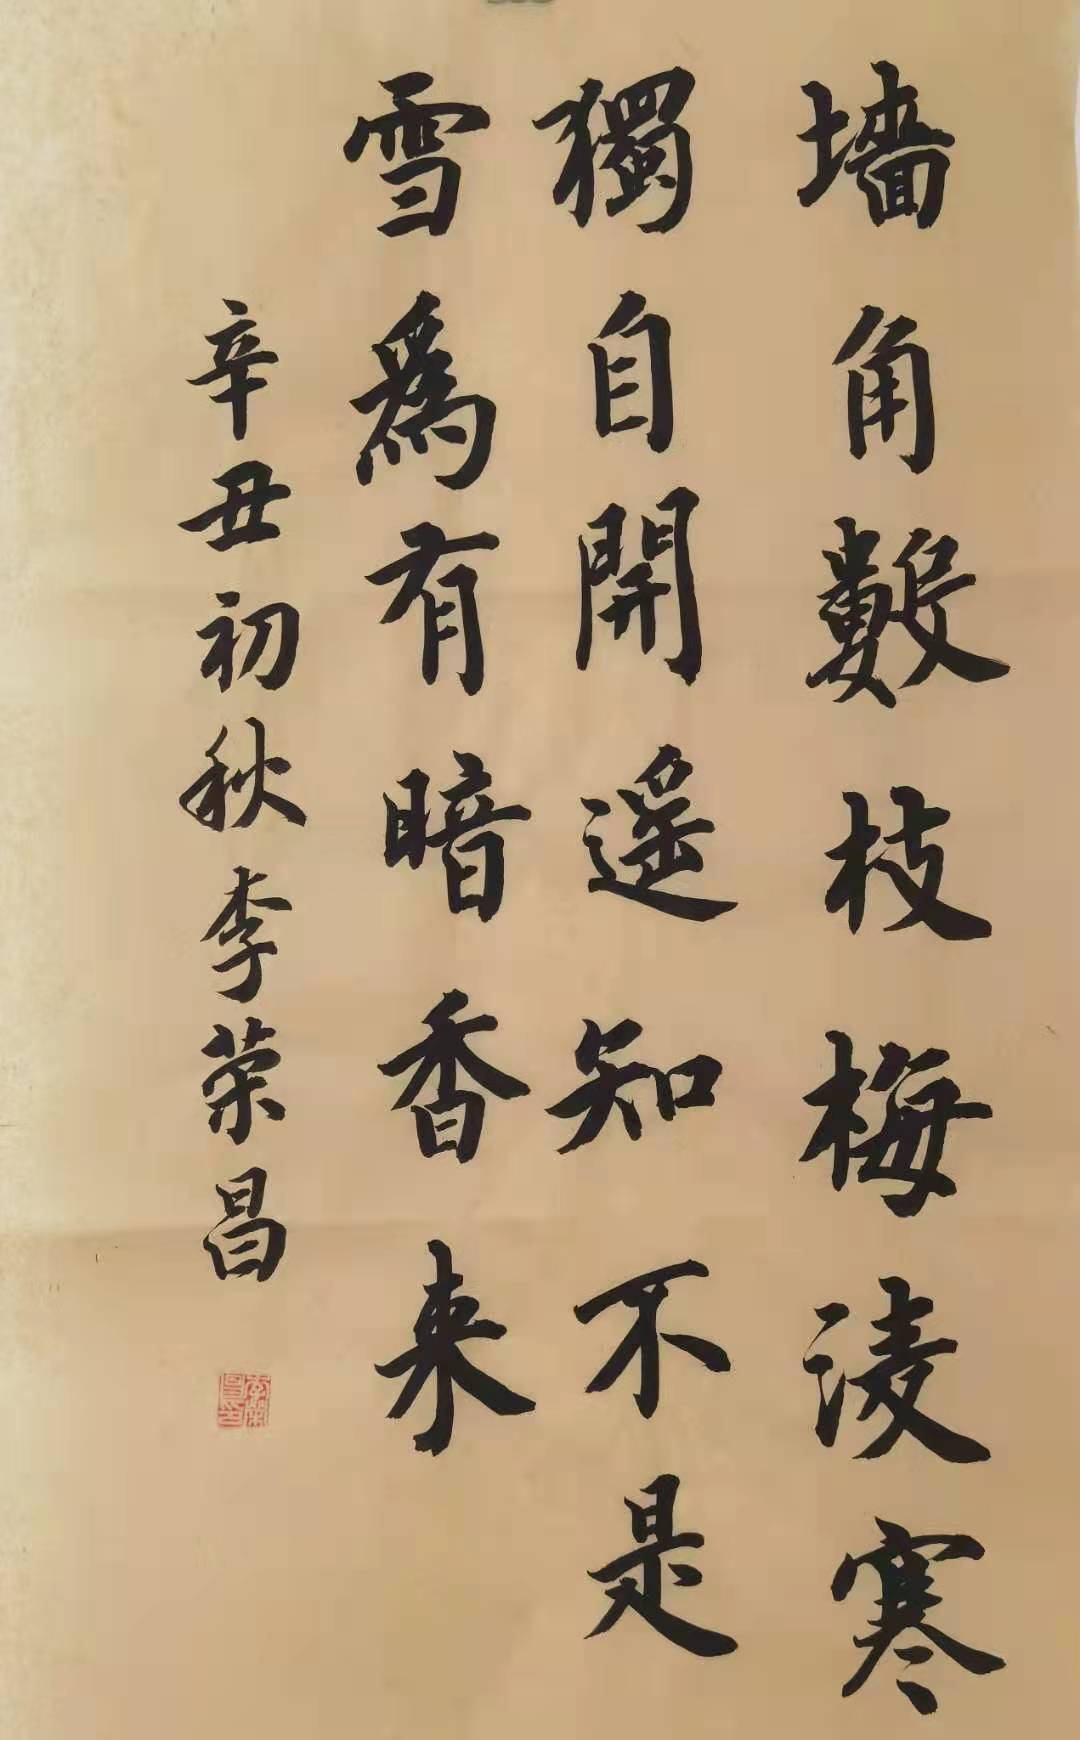 墙角數枝梅淩寒
獨自開遥知不是
雪為有暗香来
辛丑初秋李荣昌